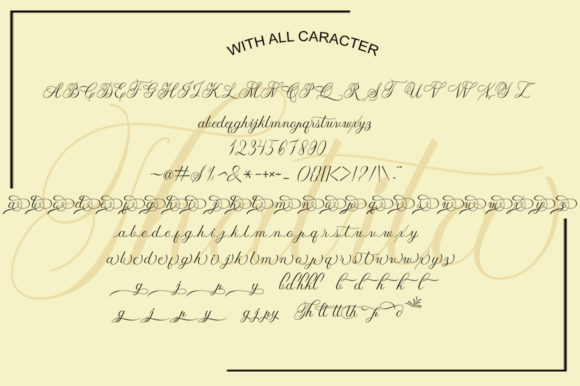 WITH ALL CARACTER
ABCDEFGHIJKLMNOPQRSTUVWXYZ
abcdefghijklmnopqrstuvwxyz
1234567890
a b c d e f g h i j k l m n o p q r s t u v w x y z
abcdefghijklmnopqrstuvwxyz
abcdefghijklmnopqrstuvwxyz
g j p y bdhkl b d h k l
g j p y gjpy Th